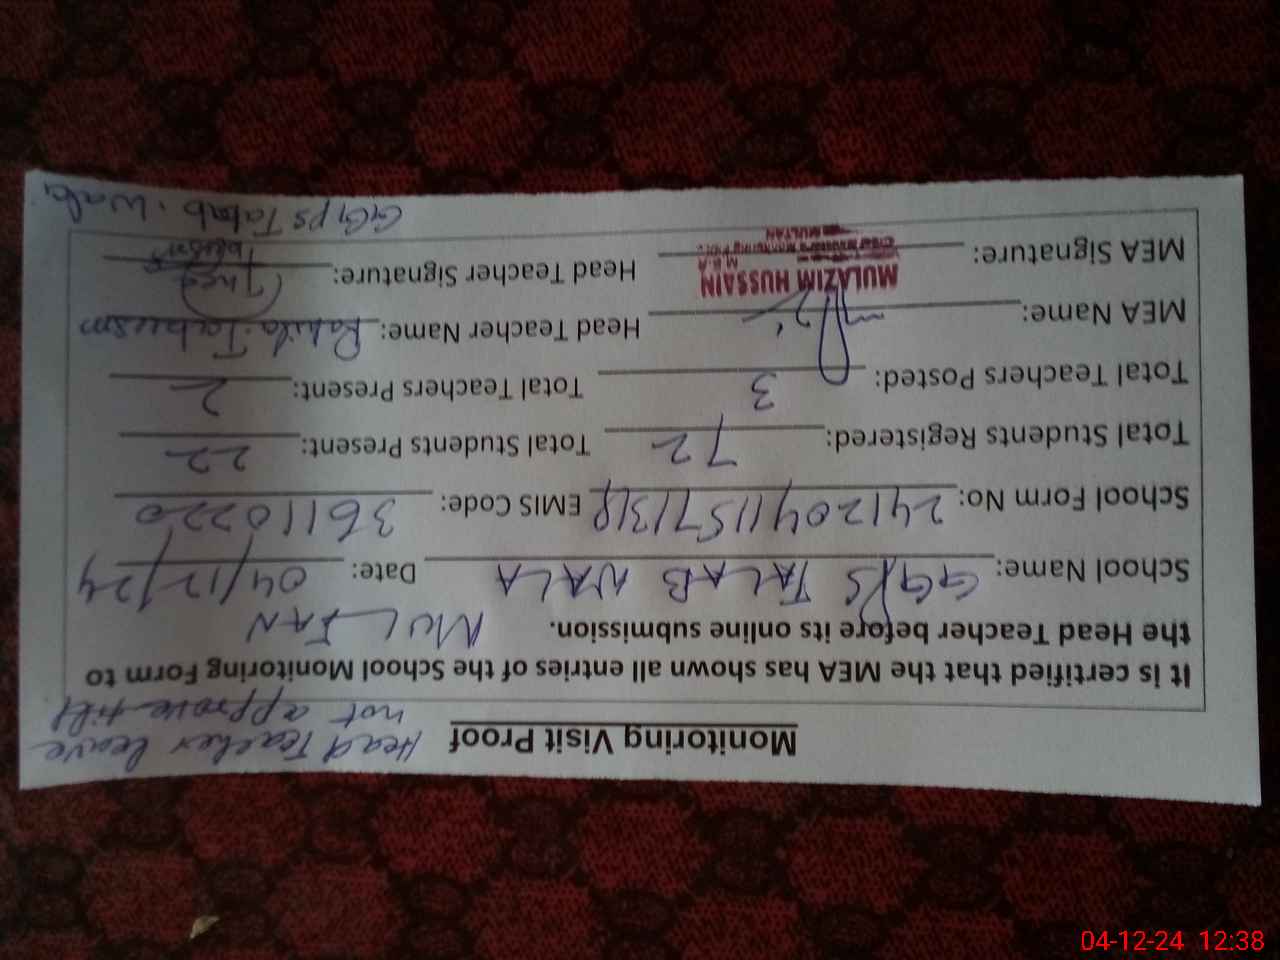 Monitoring Visit Proof Head Teacher leave
not approve till
It is certified that the MEA has shown all entries of the School Monitoring Form to
the Head Teacher before its online submission. MULTAN
School Name: GGPS TALAB WALA Date: 04/12/24
School Form No: EMIS Code: 36110220
Total Students Registered: 72 Total Students Present: 22
Total Teachers Posted: 3 Total Teachers Present: 2
MEA Name: Head Teacher Name: Rahila Tabassm
MEA Signature: MULAZIM HUSSAIN Head Teacher Signature:
M.E.A
MULTAN
GGPS Talab. Wala
04-12-24 12:38